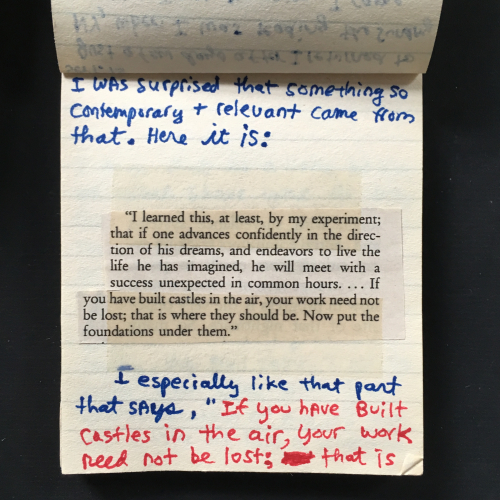 I was surprised that something so
contemporary + relevant came from
that. Here it is:
"I learned this, at least, by my experiment;
that if one advances confidently in the direc-
tion of his dreams, and endeavors to live the
life he has imagined, he will meet with a
success unexpected in common hours. . . . If
you have built castles in the air, your work need not
be lost; that is where they should be. Now put the
foundations under them."
I especially like that part
that says, "If you have Built
Castles in the air, your work
need not be lost; that is